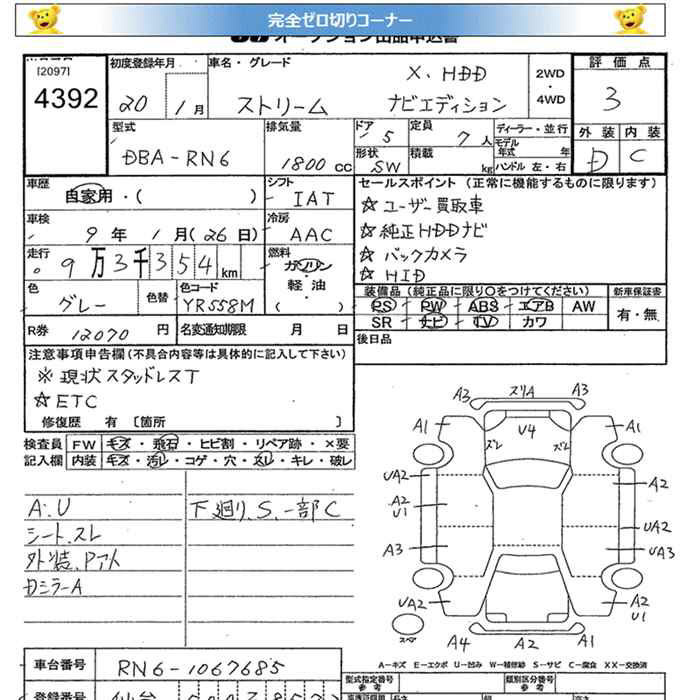 完全ゼロ切りコーナー
オークション出品申込書
[2097]
4392
初度登録年月
20 1月
車名・グレード
X、HDD
ストリーム ナビエディション
2WD・4WD
評価点
3
外装 内装
D C
型式
DBA-RN6
排気量
1800 cc
ドア 5
定員 7人
ディーラー・並行
モデル年式 年
形状 SW
積載 kg
ハンドル 左・右
車歴
自家用・( )
シフト
IAT
車検
9年 1月(26日)
冷房
AAC
走行
9万3千354km
燃料
ガソリン
軽油
( )
色
グレー
色替
色コード
YR558M
R券 12070円
名変通知期限 月 日
セールスポイント(正常に機能するものに限ります)
☆ユーザー買取車
☆純正HDDナビ
☆バックカメラ
☆HID
装備品(純正品に限り〇をつけてください)
新車保証書
PS PW ABS エアB AW
SR ナビ TV カワ
有・無
後日品
注意事項申告欄(不具合内容等は具体的に記入して下さい)
※現状スタッドレスT
☆ETC
修復歴 有〔箇所 〕
検査員記入欄
FW キズ・飛石・ヒビ割・リペア跡・×要
内装 キズ・汚レ・コゲ・穴・スレ・キレ・破レ
A、U
シート、スレ
外装、Pアト
Dミラ-A
下廻り、S、一部C
A3 ズリA A3
A1 U4 A1
ズレ ズレ
UA2 A2
A2 U1 UA2
A3 UA3
UA2 A2 U1
スペア
A4 A2 A1
A-キズ E-エクボ U-凹み W-補修跡 S-サビ C-腐食 XX-交換済
車台番号
RN6-1067685
登録番号
仙台
型式指定番号 参考
類別区分番号 参考